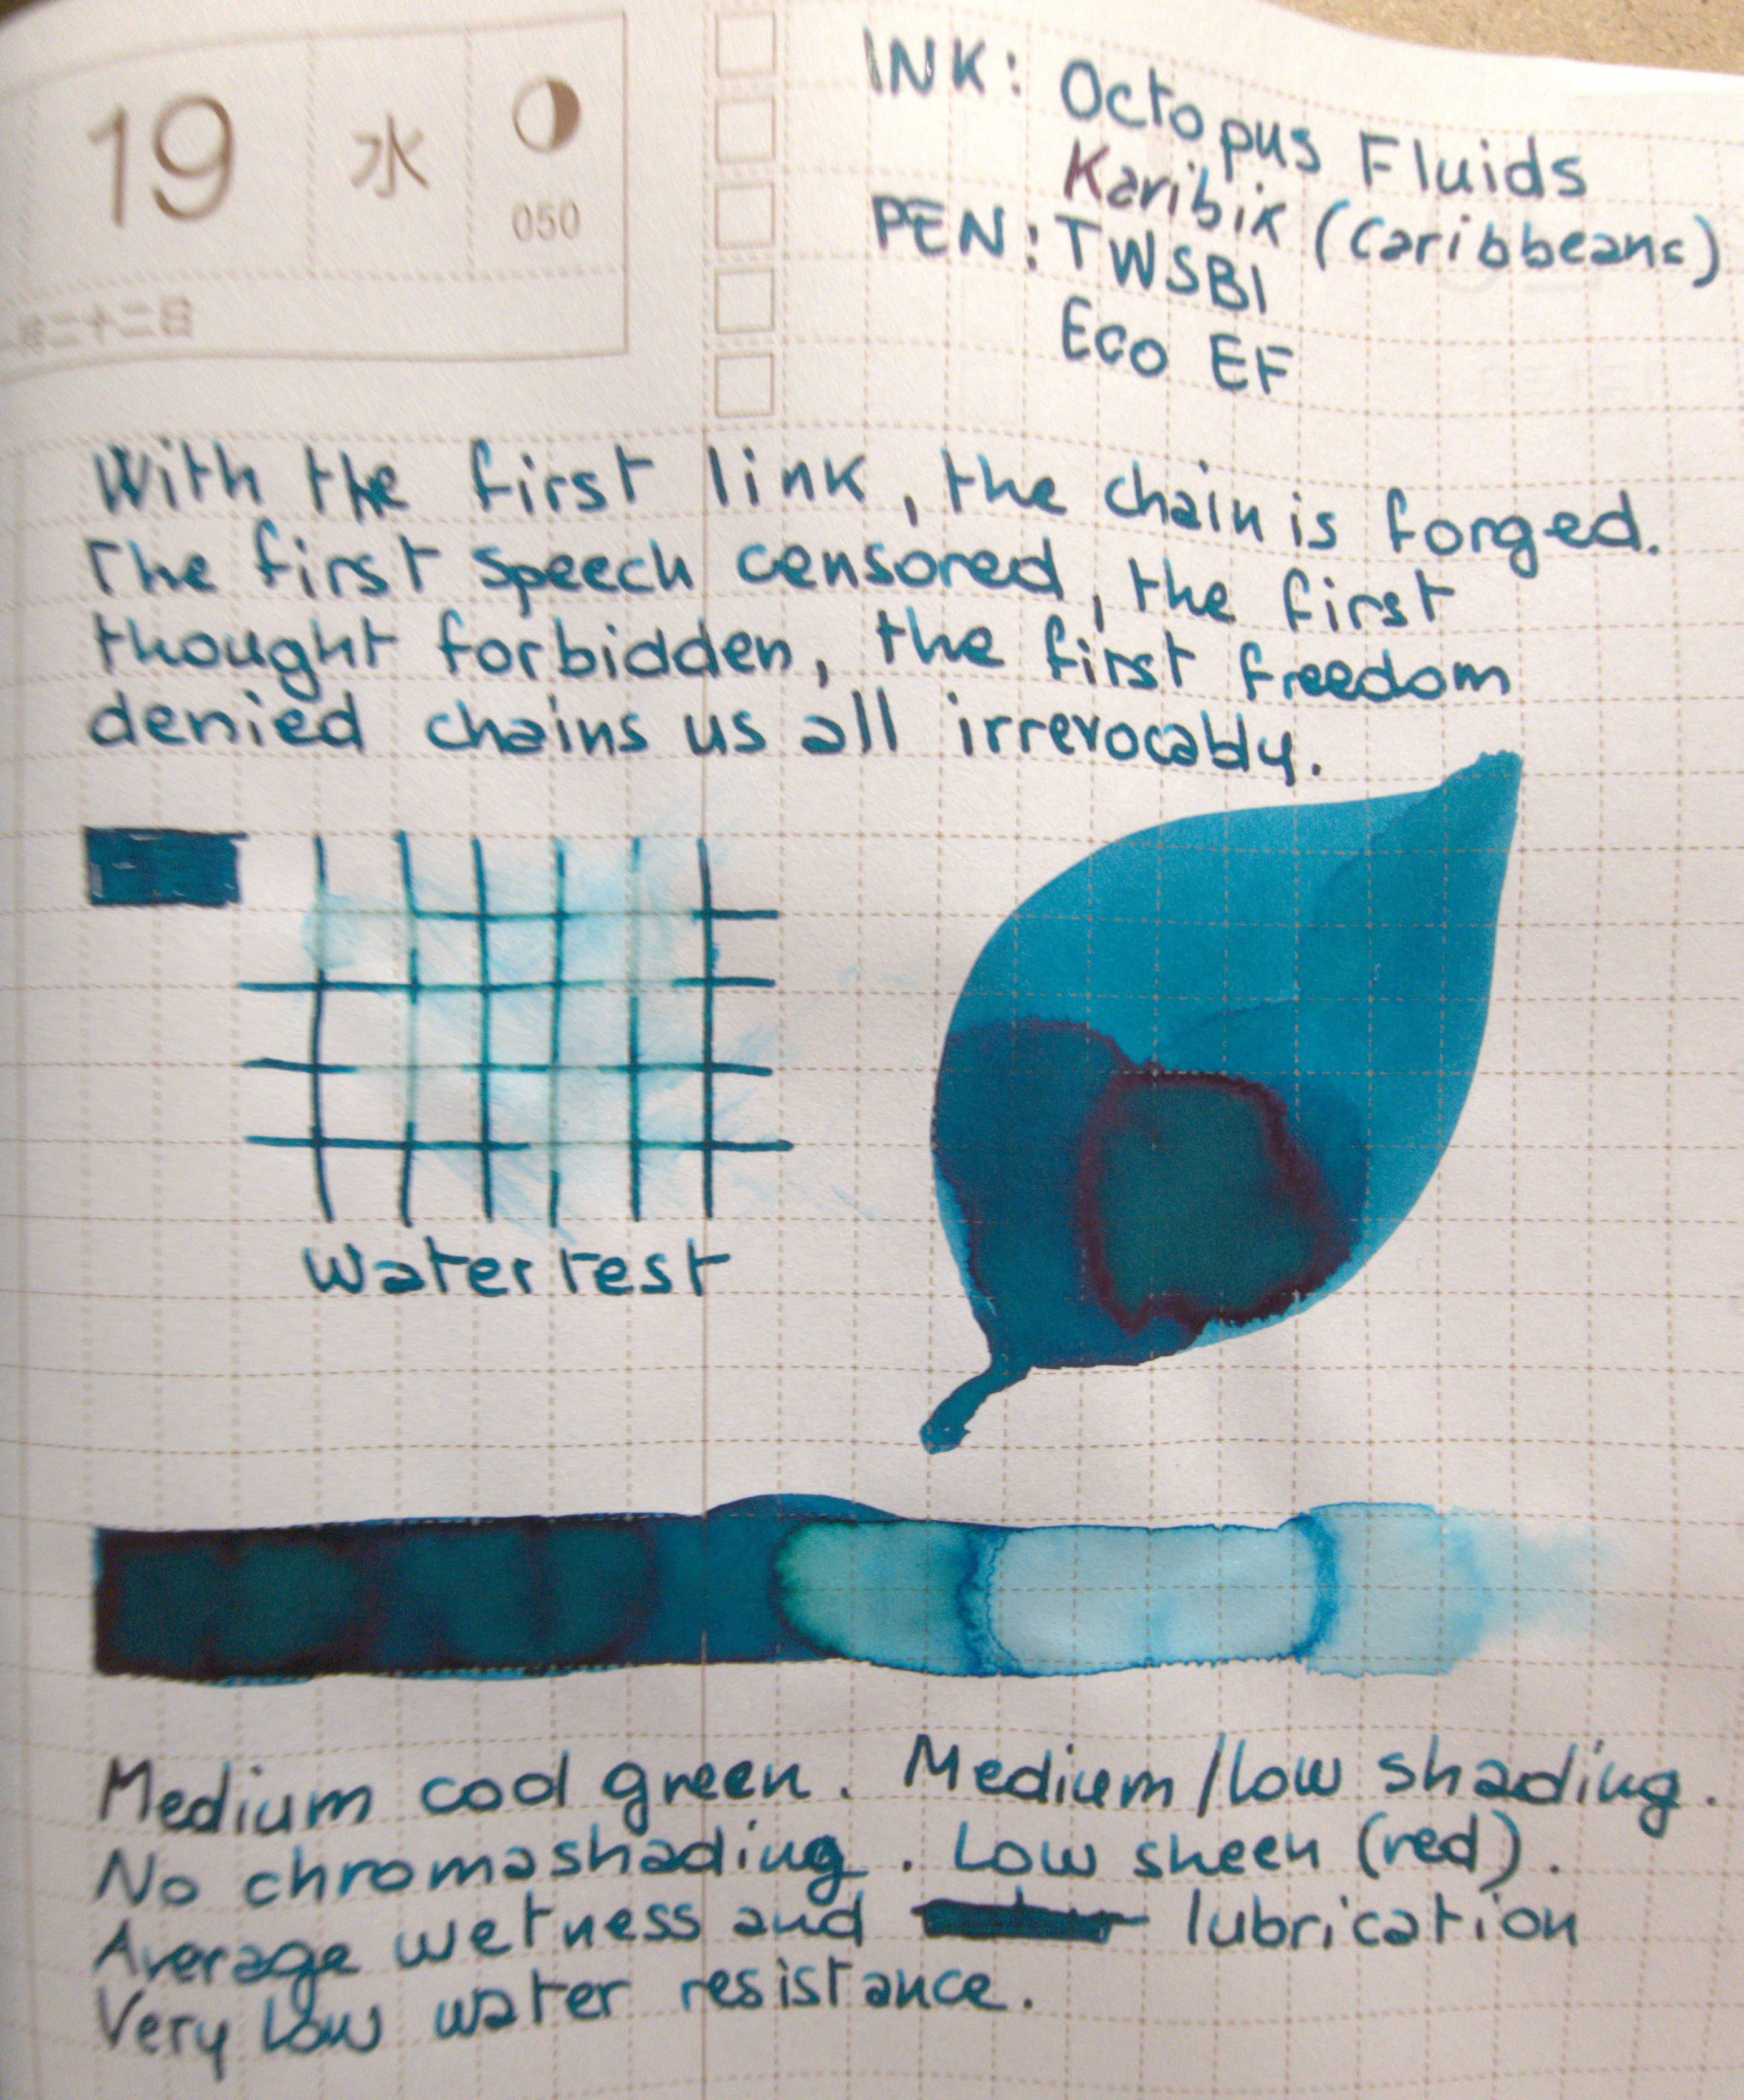 19 水 050
二十二日
INK: Octopus Fluids
Karibik (Caribbeans)
PEN: TWSBI
Eco EF
With the first link, the chain is forged.
The first speech censored, the first
thought forbidden, the first freedom
denied chains us all irrevocably.
Water test
Medium cool green. Medium/low shading.
No chromashading. Low sheen (red).
Average wetness and lubrication
Very low water resistance.